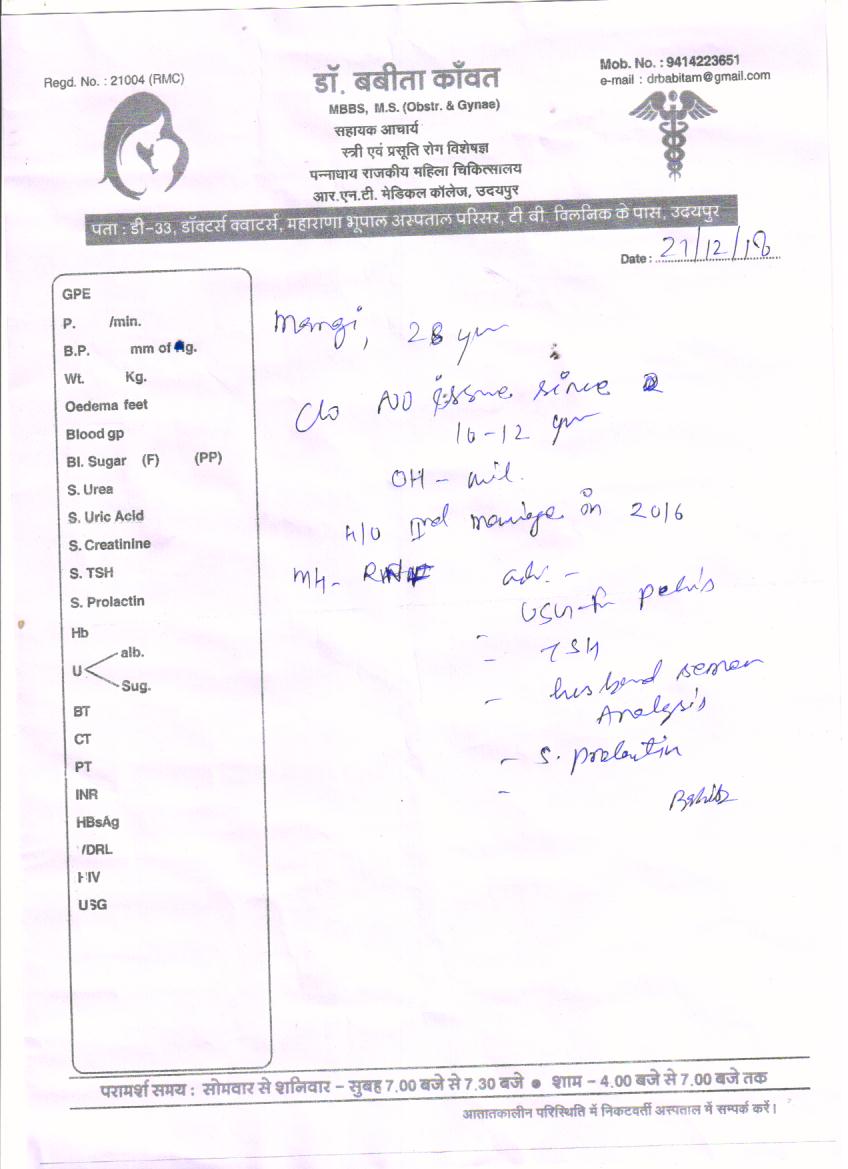 Regd. No. : 21004 (RMC)
डॉ. बबीता काँवत
MBBS, M.S. (Obstr. & Gynae)
सहायक आचार्य
स्त्री एवं प्रसूति रोग विशेषज्ञ
पन्नाधाय राजकीय महिला चिकित्सालय
आर.एन.टी. मेडिकल कॉलेज, उदयपुर
Mob. No. : 9414223651
e-mail : drbabitam@gmail.com
पता : डी-33, डॉक्टर्स क्वाटर्स, महाराणा भूपाल अस्पताल परिसर, टी. बी. क्लिनिक के पास, उदयपुर
Date : 21/12/18
GPE
P. /min.
B.P. mm of Hg.
Wt. Kg.
Oedema feet
Blood gp
Bl. Sugar (F) (PP)
S. Urea
S. Uric Acid
S. Creatinine
S. TSH
S. Prolactin
Hb
U alb.
Sug.
BT
CT
PT
INR
HBsAg
VDRL
HIV
USG
Mangi, 28 yrs
C/o NO issue since
10-12 yrs
OH - nil.
H/O IInd marriage in 2016
MH-
adv. -
USG-for pelvis
- TSH
- husband semen
Analysis
- S. prolactin
-
परामर्श समय : सोमवार से शनिवार - सुबह 7.00 बजे से 7.30 बजे ● शाम - 4.00 बजे से 7.00 बजे तक
आतातकालीन परिस्थिति में निकटवर्ती अस्पताल में सम्पर्क करें।